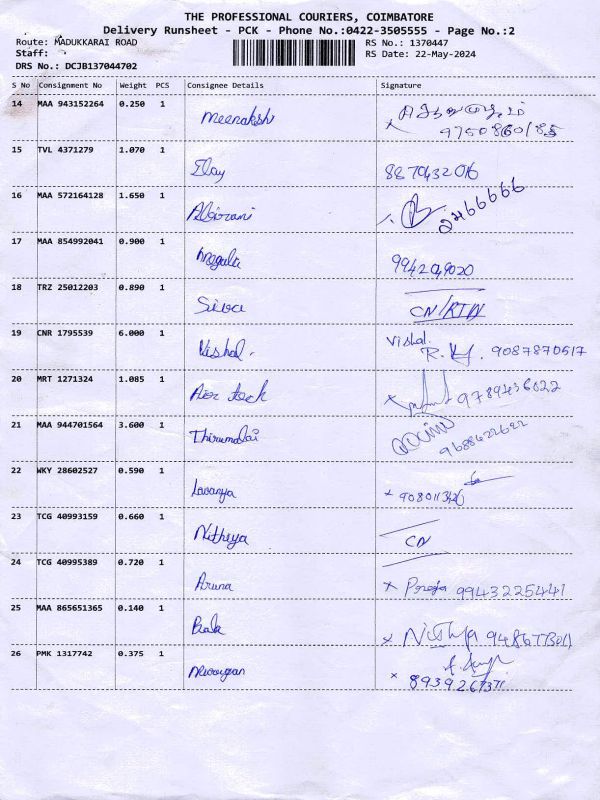 THE PROFESSIONAL COURIERS, COIMBATORE
Delivery Runsheet - PCK - Phone No.:0422-3505555 - Page No.:2
Route: MADUKKARAI ROAD RS No.: 1370447
Staff: RS Date: 22-May-2024
DRS No.: DCJB137044702
S No Consignment No Weight PCS Consignee Details Signature
14 MAA 943152264 0.250 1 Meenakshi
15 TVL 4371279 1.070 1 Elay 8870432016
16 MAA 572164128 1.650 1 Abirami
17 MAA 854992041 0.900 1
18 TRZ 25012203 0.890 1 Siva CN/RTN
19 CNR 1795539 6.000 1 Vishal. Vishal. 9087870517
20 MRT 1271324 1.085 1 Air tech 9789436022
21 MAA 944701564 3.600 1 Thirumalai
22 WKY 28602527 0.590 1 Lavanya
23 TCG 40993159 0.660 1 Nithiya CN
24 TCG 40995389 0.720 1 Aruna x Pooja 9943225441
25 MAA 865651365 0.140 1 Bala x Nithya
26 PMK 1317742 0.375 1 Murugan